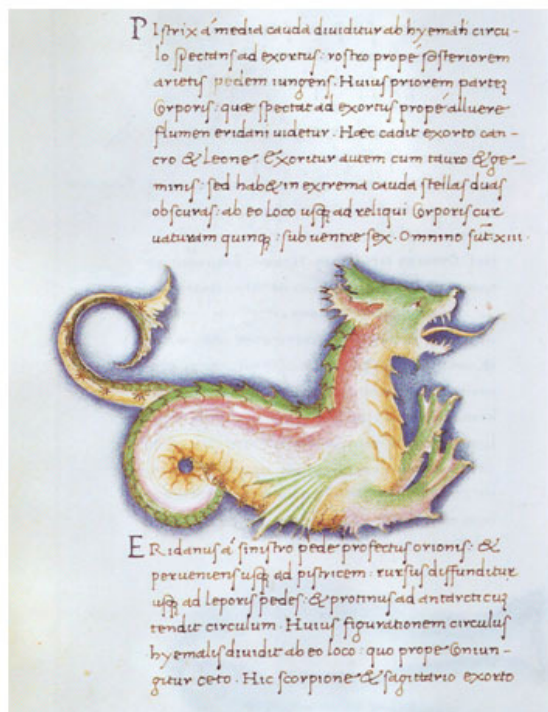 PIſtrix a' media cauda diuiditur ab hyemali circu-
lo ſpectans ad exortus: roſtro prope poſteriorem
arietis pedem iungens. Huius priorem partez
corporis: quæ ſpectat ad exortus prope alluere
flumen eridani uidetur. Hæc cadit exorto can-
cro & leone. Exoritur autem cum tauro & ge-
minis: ſed hab& in extrema cauda ſtellas duas
obſcuras: ab eo loco uſqꝫ ad reliqui corporis cur
uaturam quinqꝫ: ſub uentre ſex. Omnino ſūt. xiii.
ERidanus a' ſiniſtro pede profectus orionis: &
perueniens uſqꝫ ad piſtricem: rurſus diffunditur
uſqꝫ ad leporis pedes: & protinus ad antarcticuꝫ
tendit circulum. Huius figurationem circulus
hyemalis diuidit ab eo loco: quo prope coniun-
gitur ceto. Hic ſcorpione & ſagittario exorto